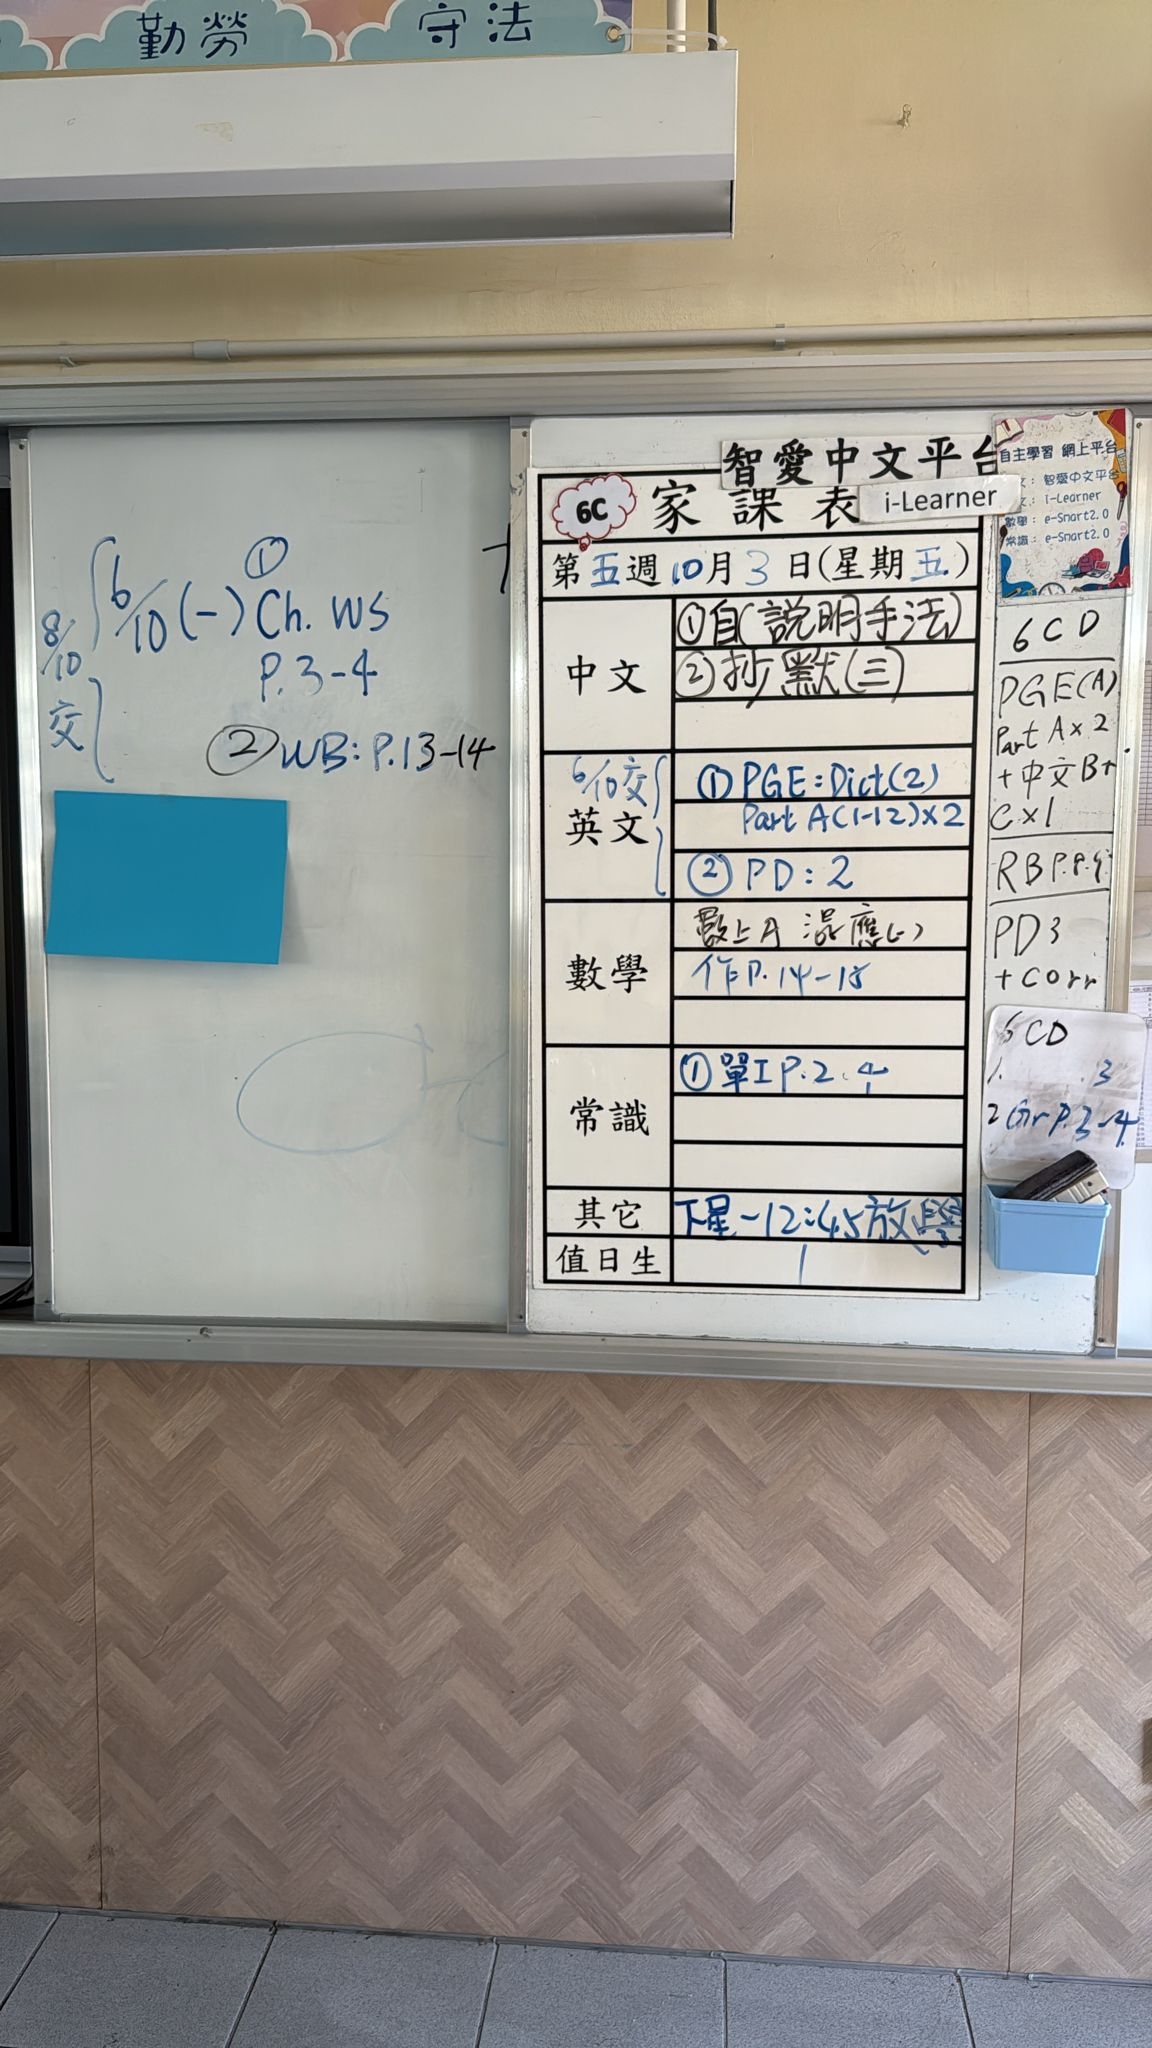 勤勞 守法
①
6/10(一) Ch. WS
P.3-4
8/10
交
② WB: P.13-14
智愛中文平台
6C 家課表
i-Learner
第五週10月3日(星期五)
中文
①自(說明手法)
②抄默(三)
英文
6/10交
①PGE:Dict(2)
Part A(1-12)×2
② PD:2
數學
數上A 混應(一)
作P.14-15
常識
①單I P.2.4
其它
下星一12:45放學
值日生
1
自主學習 網上平台
文: 智愛中文平台
文: i-Learner
數學: e-Smart2.0
常識: e-Smart2.0
6CD
PGE(A)
Part A×2
+中文B+
C×1
RB P.8.9
PD3
+corr
6CD
1. 3
2 Gr P.3-4